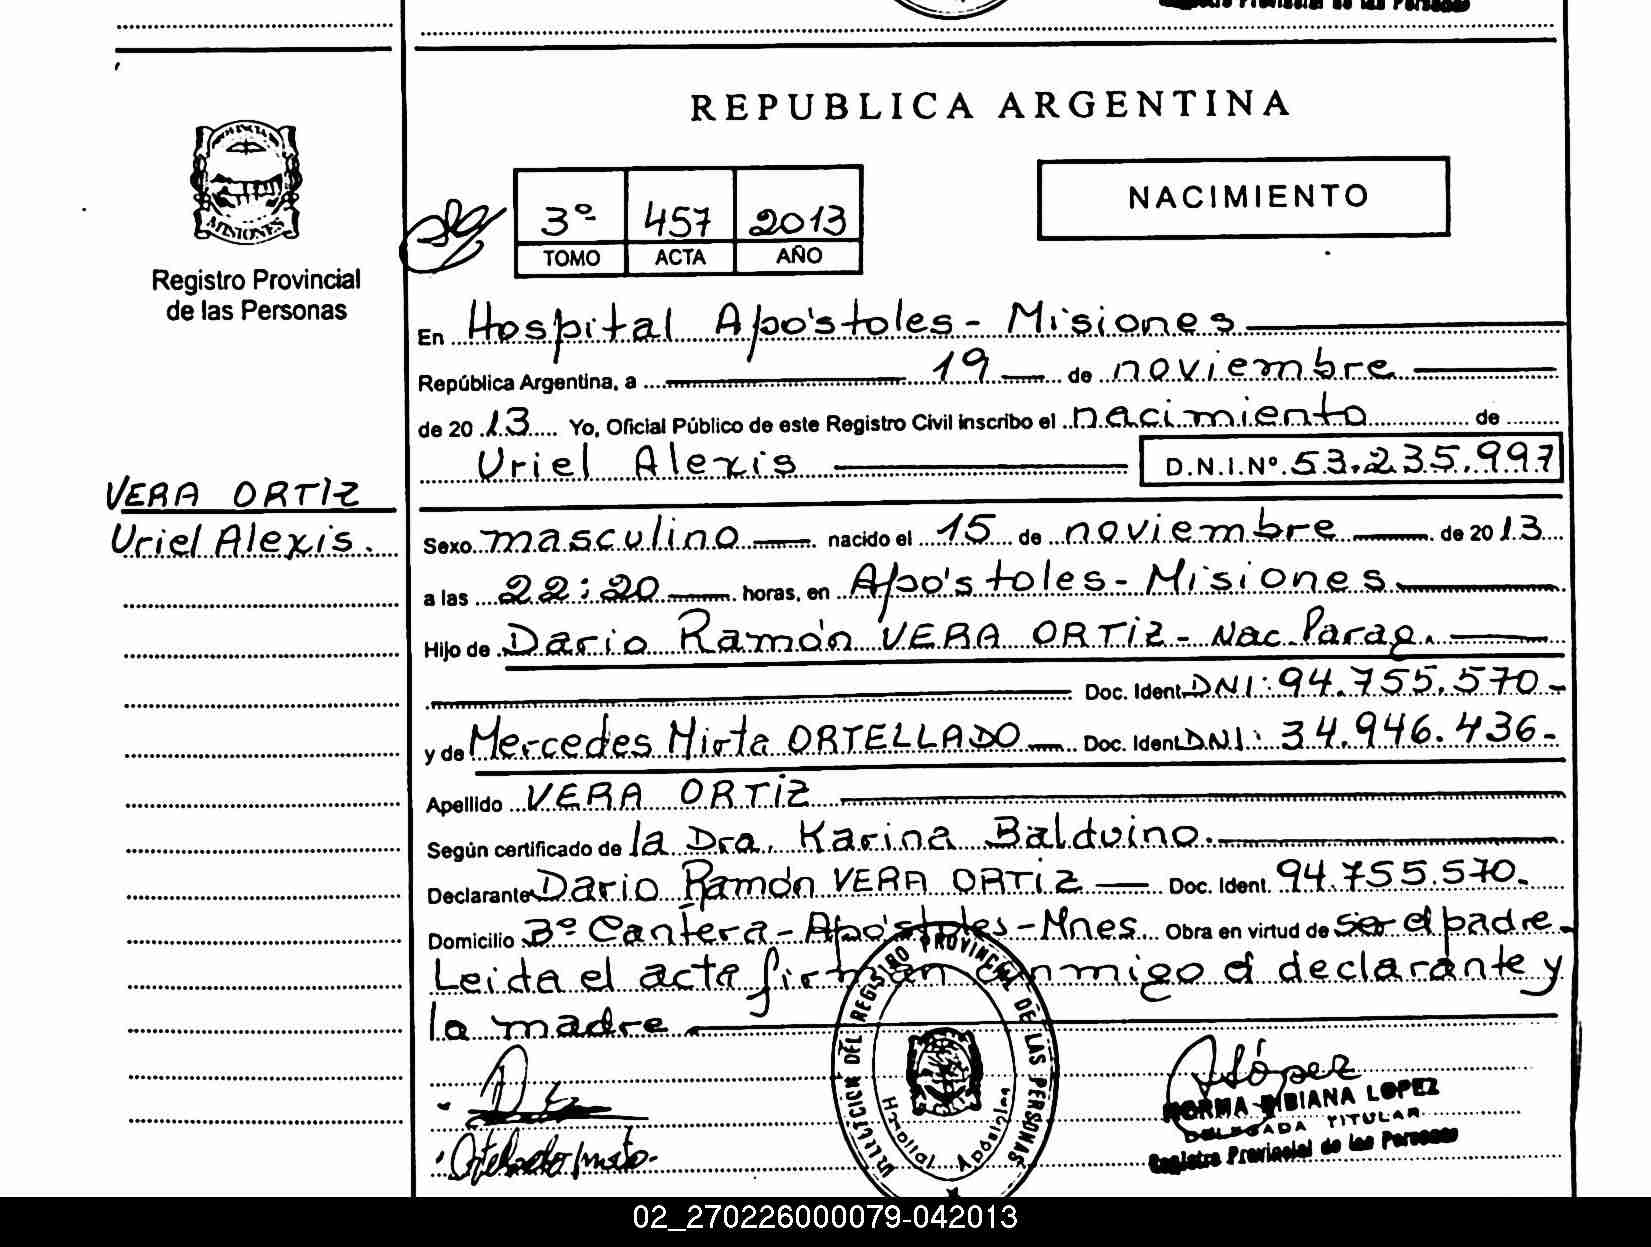 REPUBLICA ARGENTINA
MISIONES
Registro Provincial
de las Personas
3º 457 2013
TOMO ACTA AÑO
NACIMIENTO
En Hospital Apóstoles - Misiones
República Argentina, a 19 de noviembre
de 2013 Yo, Oficial Público de este Registro Civil inscribo el nacimiento de
Uriel Alexis D.N.I.Nº 53.235.997
VERA ORTIZ
Uriel Alexis.
Sexo masculino nacido el 15 de noviembre de 2013
a las 22:20 horas, en Apóstoles - Misiones
Hijo de Dario Ramón VERA ORTIZ - Nac. Parag.
Doc. Ident. DNI: 94.755.570-
y de Mercedes Mirta ORTELLADO Doc. Ident. DNI: 34.946.436-
Apellido VERA ORTIZ
Según certificado de la Dra. Karina Balduino.
Declarante Dario Ramón VERA ORTIZ Doc. Ident. 94.755.570.
Domicilio 3º Cantera - Apóstoles - Mnes. Obra en virtud de ser el padre.
Leida el acta firman conmigo el declarante y
la madre
DEL REGISTRO PROVINCIAL DE LAS PERSONAS
Hospital Apóstoles
López
NORMA BIBIANA LOPEZ
DELEGADA TITULAR
Registro Provincial de las Personas
02_270226000079-042013